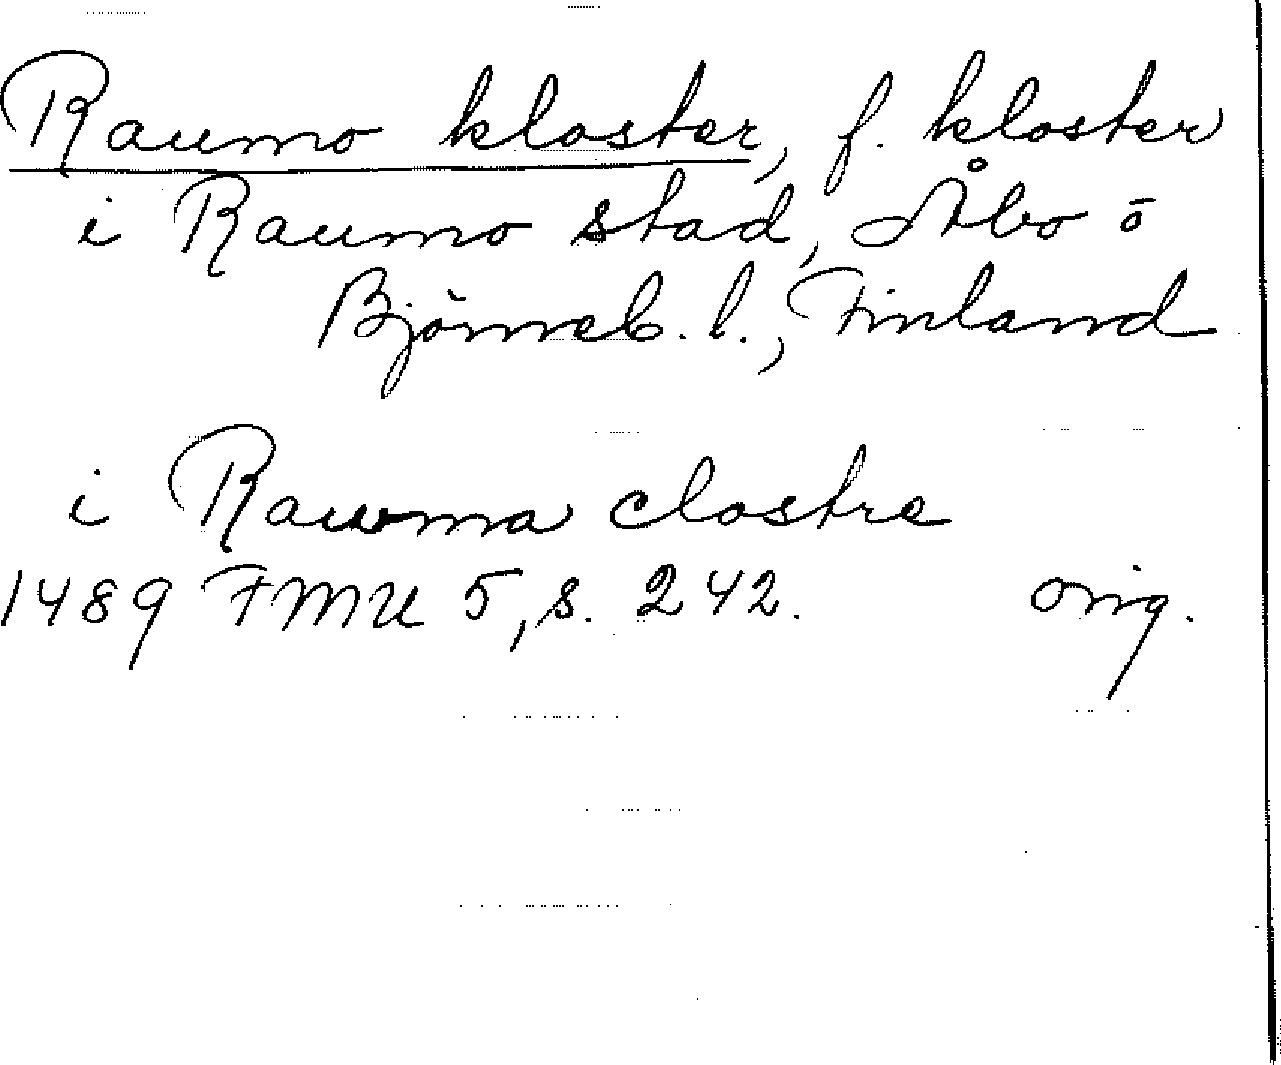 Raumo kloster, f. kloster
i Raumo stad, Åbo o
Björneb. l., Finland
i Rauma clostre
1489 FMU 5, s. 242. orig.